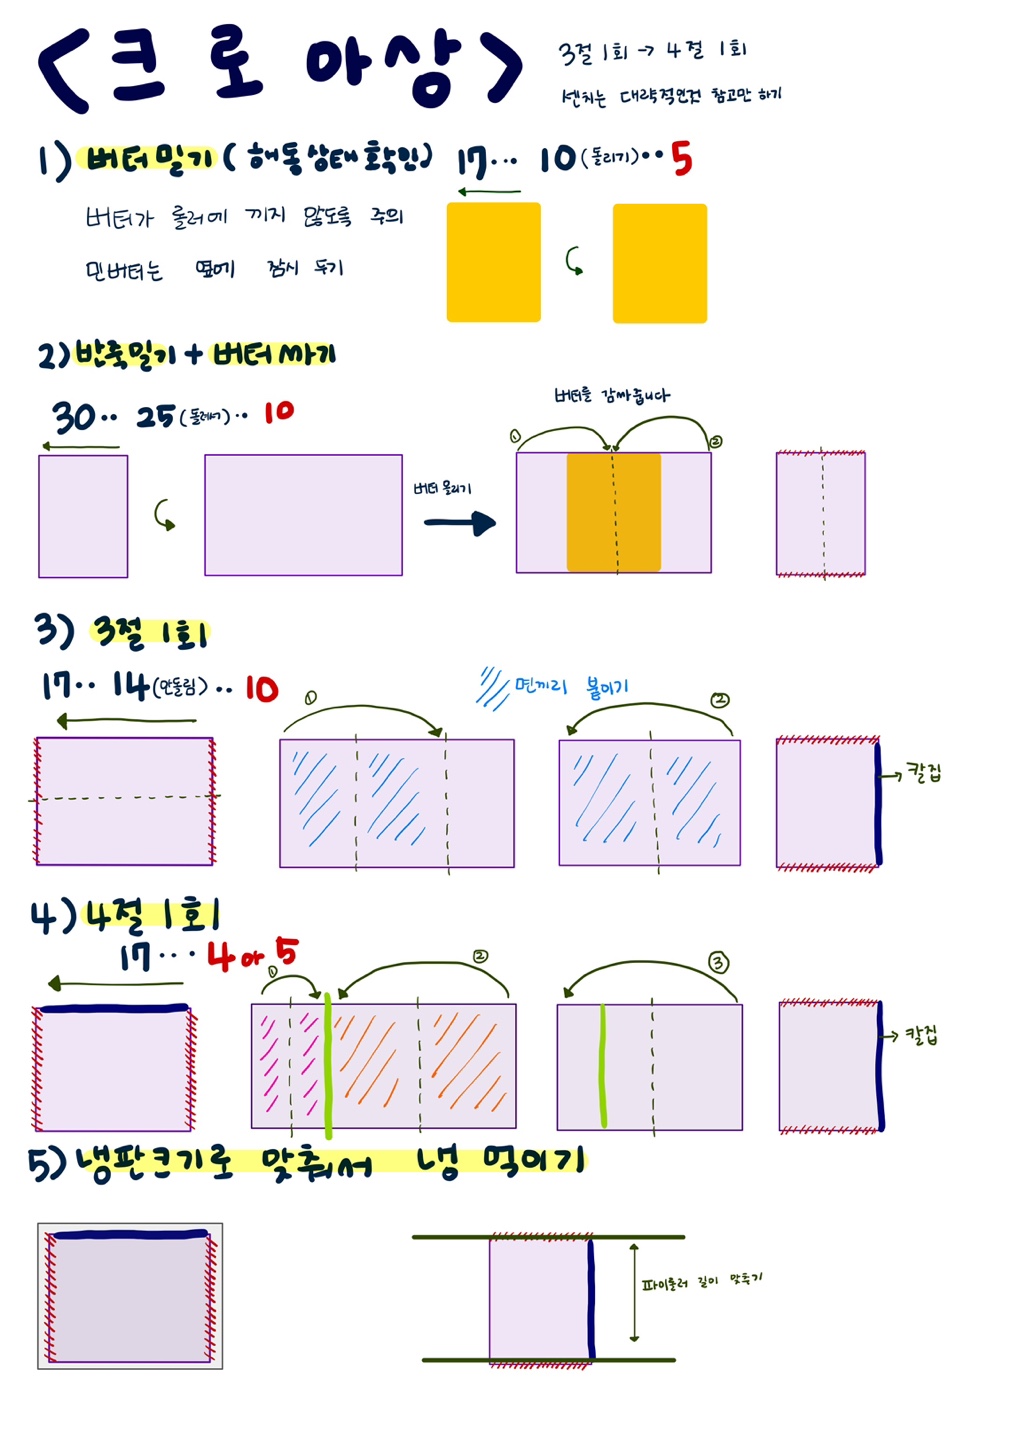 <크로아상>
3절 1회 → 4절 1회
센치는 대략적인것 참고만 하기
1) 버터밀기 (해동상태확인) 17... 10 (돌리기).. 5
버터가 롤러에 끼지 않도록 주의
민버터는 옆에 잠시 두기
2) 반죽밀기 + 버터싸기
30.. 25 (돌려서).. 10
버터를 감싸줍니다
① ②
버터올리기
3) 3절 1회
17.. 14 (안돌림).. 10
① 면끼리 붙이기 ②
→ 칼집
4) 4절 1회
17... 4 or 5
① ② ③
→ 칼집
5) 냉판크기로 맞춰서 냉 먹이기
파이롤러 길이 맞추기